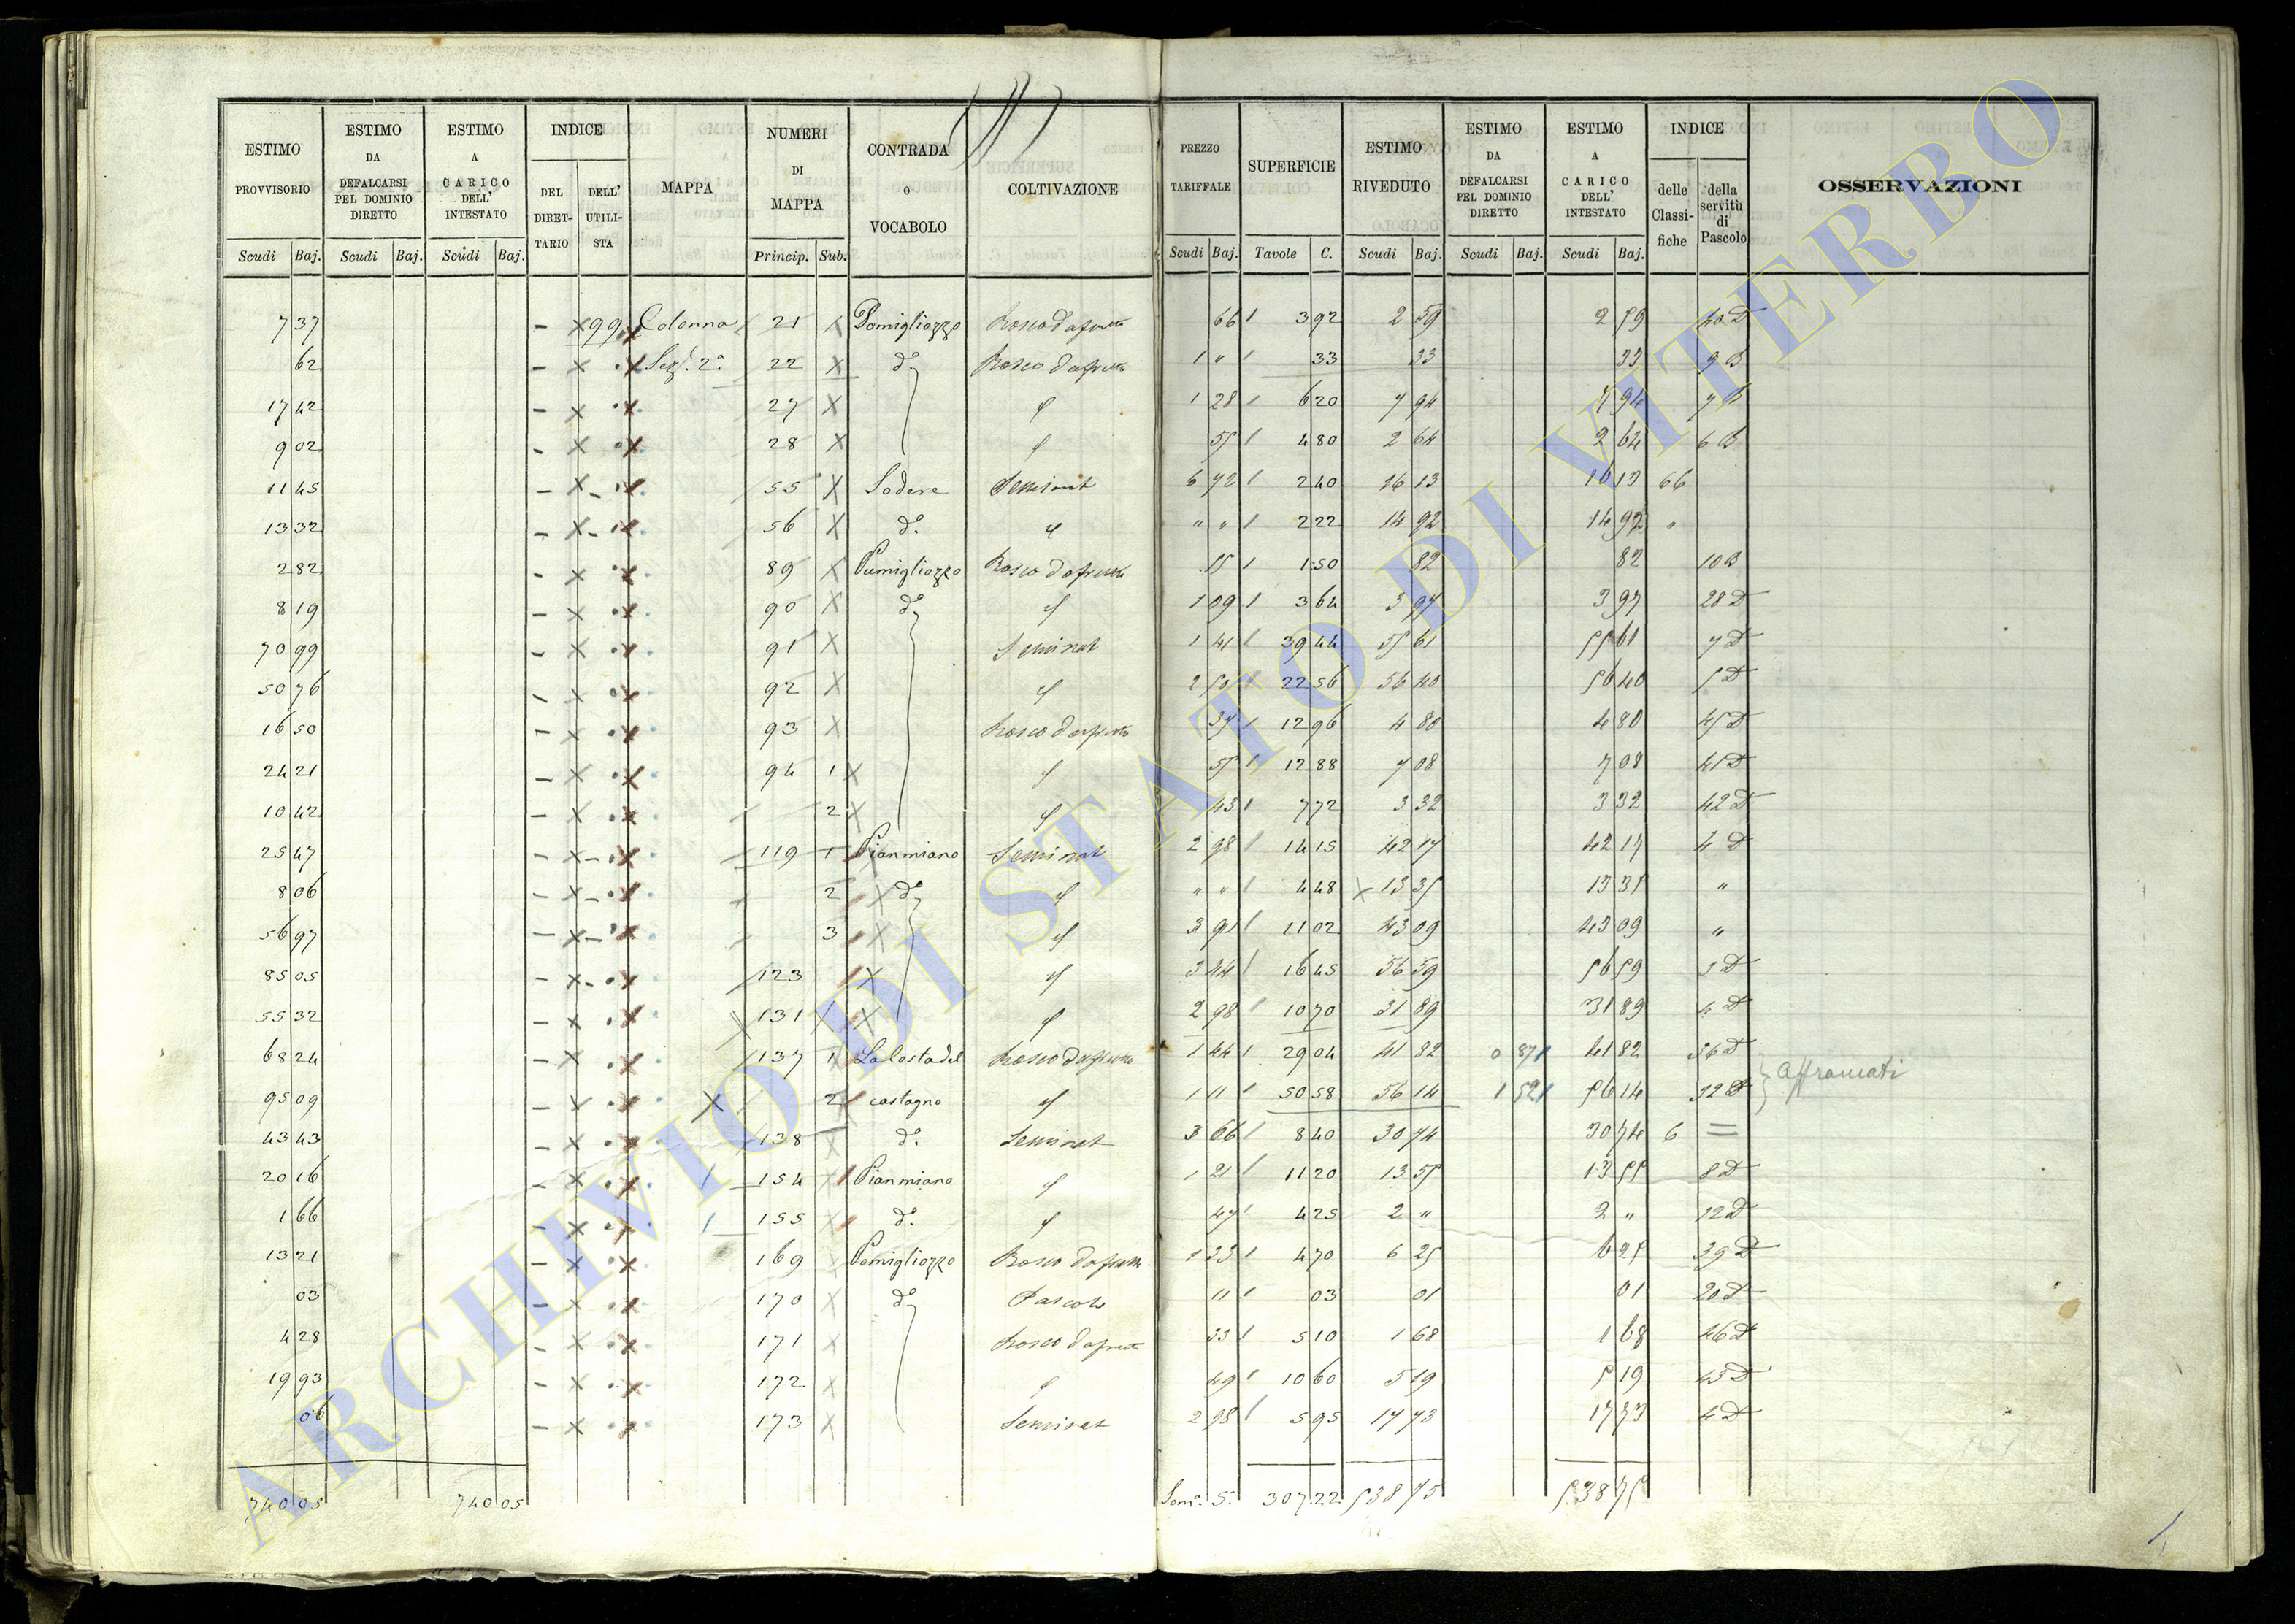 ESTIMO PROVVISORIO | ESTIMO DA DEFALCARSI PEL DOMINIO DIRETTO | ESTIMO A CARICO DELL' INTESTATO | INDICE | MAPPA | NUMERI DI MAPPA | CONTRADA o VOCABOLO | COLTIVAZIONE | PREZZO TARIFFALE | SUPERFICIE | ESTIMO RIVEDUTO | ESTIMO DA DEFALCARSI PEL DOMINIO DIRETTO | ESTIMO A CARICO DELL' INTESTATO | INDICE | OSSERVAZIONI
DEL DIRETTARIO | DELL' UTILISTA | delle Classifiche | della servitù di Pascolo
Scudi Baj. | Scudi Baj. | Scudi Baj. | Princip. Sub. | Scudi Baj. | Tavole C. | Scudi Baj. | Scudi Baj. | Scudi Baj.
7 37 - × 99 × Colonna 21 × Pomigliozzo Bosco da frutto 66 3 92 2 59 2 59 40 D
62 - × × Sez. 2ª 22 × dº Bosco da frutto 1 " 33 33 33 9 B
17 42 - × × 27 × " 1 28 6 20 7 94 7 94 7 B
9 02 - × × 28 × " 55 4 80 2 64 2 64 6 B
11 45 - × - × 55 × Sodere Seminat 6 72 2 40 16 13 16 13 66
13 32 - × - × 56 × dº " " " 2 22 14 92 14 92 "
2 82 - × × 89 × Pumigliozzo Bosco da frutto 55 1 50 82 82 10 B
8 19 - × × 90 × dº " 1 09 3 64 3 97 3 97 28 D
70 99 - × × 91 × Seminat 1 41 39 44 55 61 55 61 7 D
50 76 - × × 92 × " 2 50 22 56 56 40 56 40 5 D
16 50 - × × 93 × Bosco da frutto 37 12 96 4 80 4 80 45 D
24 21 - × × 94 1 × " 55 12 88 7 08 7 08 41 D
10 42 - × × 2 × " 43 7 72 3 32 3 32 42 D
25 47 - × - × 119 1 Pianmiano Seminat 2 98 14 15 42 17 42 17 4 D
8 06 - × - × 2 × dº " " " 4 48 × 13 35 13 35 "
56 97 - × - × 3 × " 3 91 11 02 43 09 43 09 "
85 05 - × - × 123 × " 3 44 16 45 56 59 56 59 3 D
55 32 - × × 131 × " 2 98 10 70 31 89 31 89 4 D
68 24 - × × 137 1 La Costa del Bosco da frutto 1 44 29 04 41 82 0 87 41 82 36 D
95 09 - × × × 2 castagno " 1 11 50 58 56 14 1 52 56 14 32 D
Affrancati
43 43 - × × 138 × dº Seminat 3 66 8 40 30 74 30 74 6 =
20 16 - × × 154 × Pianmiano " 1 21 11 20 13 55 13 55 8 D
1 66 - × × 155 × dº " 47 4 25 2 " 2 " 12 D
13 21 - × × 169 × Pomigliozzo Bosco da frutto 1 33 4 70 6 25 6 25 39 D
03 - × × 170 × dº Pascolo 11 03 01 01 20 D
4 28 - × × 171 × Bosco da frutto 33 5 10 1 68 1 68 46 D
19 93 - × × 172 × " 49 10 60 5 19 5 19 43 D
06 - × × 173 × Seminat 2 98 5 95 17 73 17 73 4 D
740 05 740 05 Somª Sª 307 22 538 75 538 75
ARCHIVIO DI STATO DI VITERBO